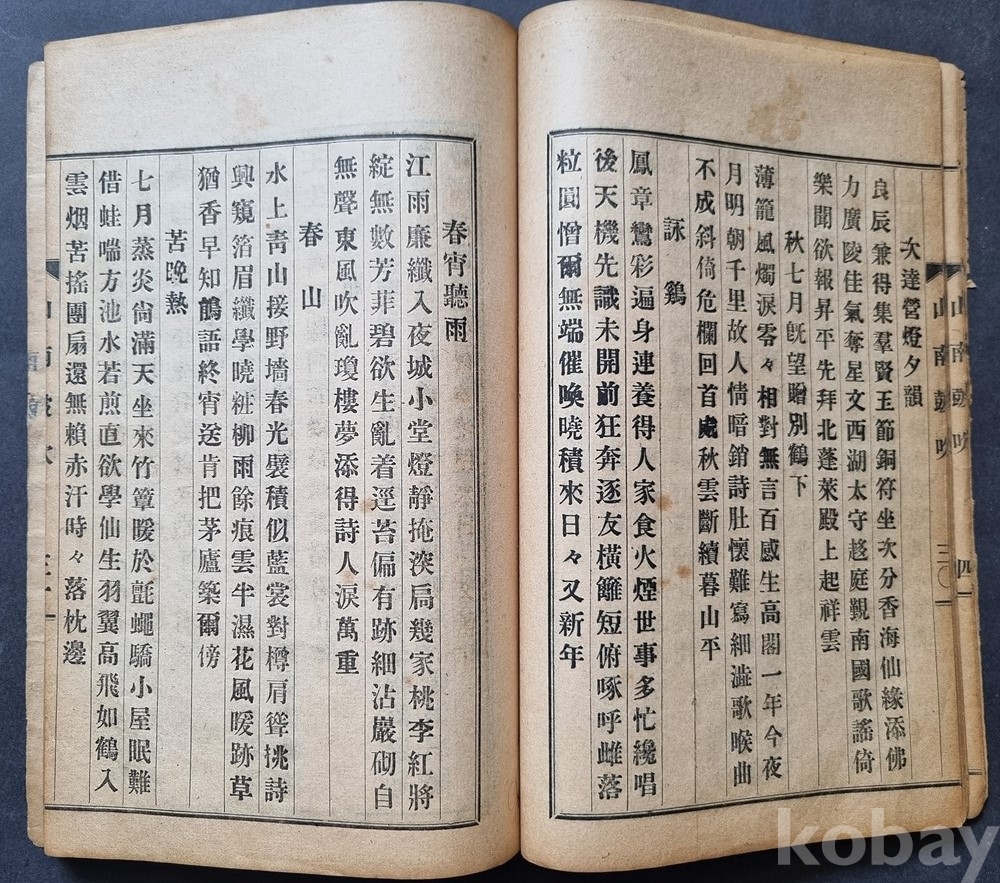 次達營燈夕韻
良辰兼得集羣賢王節銅符坐次分香海仙緣添佛
力廣陵佳氣奪星文西湖太守趍庭覲南國歌謠倚
樂聞欲報昇平先拜北蓬萊殿上起祥雲
秋七月旣望贈別鶴下
薄籠風燭淚零々相對無言百感生高閣一年今夜
月明朝千里故人情暗銷詩肚懷難寫細澁歌喉曲
不成斜倚危欄回首處秋雲斷續暮山平
詠鷄
鳳章鸞彩遍身連養得人家食火煙世事多忙纔唱
後天機先識未開前狂奔逐友橫籬短俯啄呼雌落
粒圓憎爾無端催喚曉積來日々又新年
山南鼓吹
三〇
山南鼓吹
四
春宵聽雨
江雨廉纖入夜城小堂燈靜掩深扃幾家桃李紅將
綻無數芳菲碧欲生亂着逕苔偏有跡細沾巖砌自
無聲東風吹亂瓊樓夢添得詩人淚萬重
春山
水上靑山接野墻春光襞積似藍裳對樽肩聳挑詩
興窺箔眉纖學曉粧柳雨餘痕雲半濕花風暖跡草
猶香早知鶴語終宵送肯把茅廬築爾傍
苦晚熱
七月蒸炎尙滿天坐來竹簟暖於氈蠅驕小屋眠難
借蛙喘方池水若煎直欲學仙生羽翼高飛如鶴入
雲烟苦搖團扇還無賴赤汗時々落枕邊
kobay